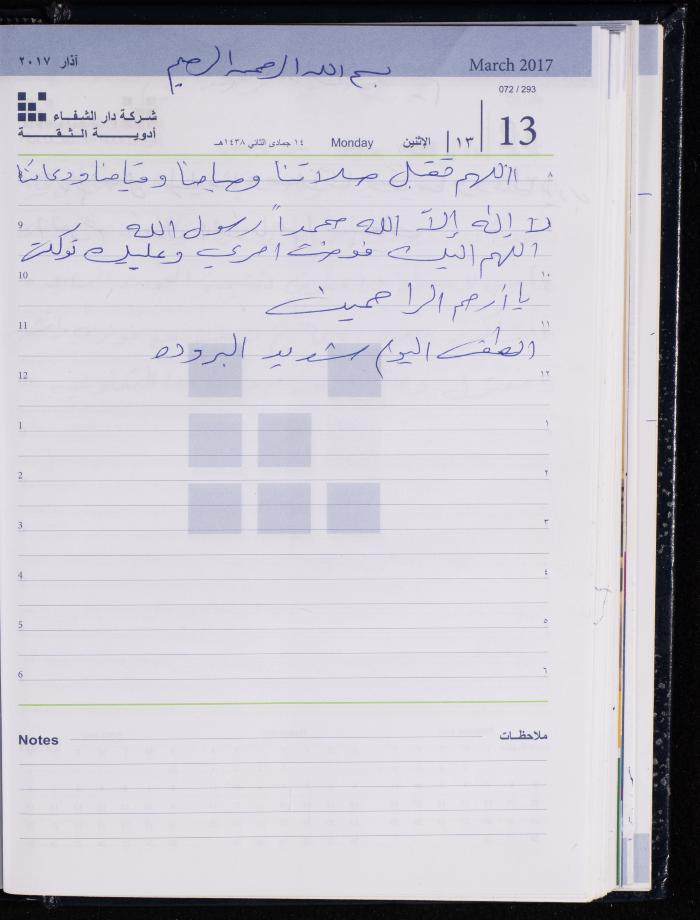 آذار ٢٠١٧
بسم الله الرحمن الرحيم
March 2017
072 / 293
شركة دار الشفاء
أدوية الثقة
١٤ جمادى الثاني ١٤٣٨هـ
Monday
الإثنين
١٣
13
اللهم تقبل صلاتنا وصيامنا وقيامنا ودعائنا
لا إله إلا الله محمداً رسول الله
9
اللهم اليك فوضت امري وعليك توكلت
10 ١٠
يا أرحم الراحمين
11 ١١
الطقس اليوم شديد البروده
12 ١٢
1 ١
2 ٢
3 ٣
4 ٤
5 ٥
6 ٦
Notes ملاحظات